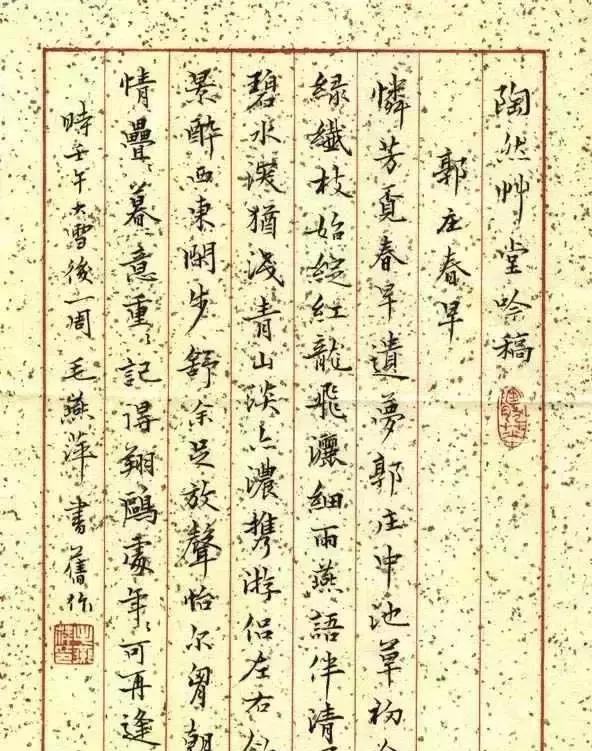 陶然艸堂吟稿
郭庄春早
憐芳覓春早遺夢郭庄中池草初
緑纖枝始綻紅龍飛灑細雨燕語伴清
碧水深猶浅青山淡亦濃携游侣左右
景醉西東閑步舒余足放聲怡尔胷朝
情疊々暮意重々記得翔鷗處年々可再逢
時壬午大雪後一周 毛燕萍書舊作